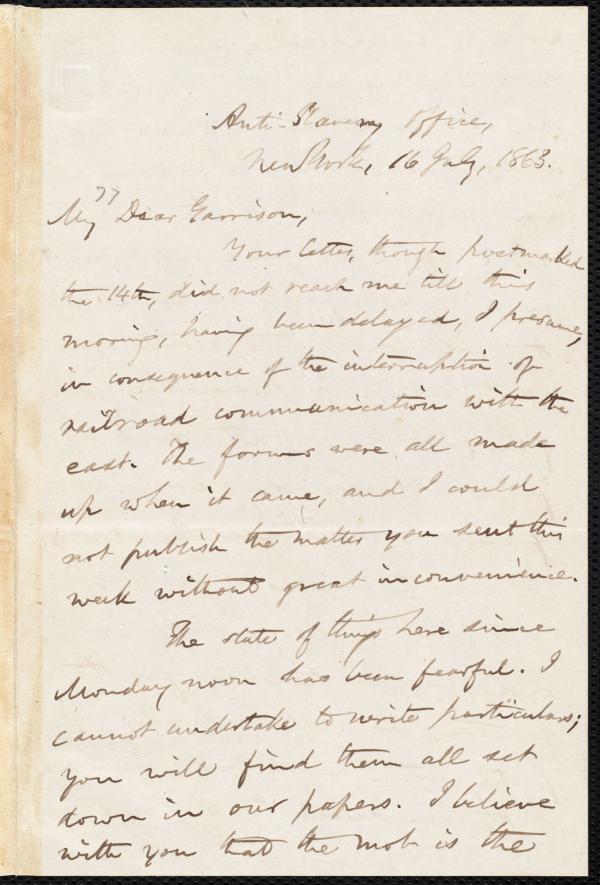 Anti-Slavery Office,
New York, 16 July, 1863.
My Dear Garrison,
Your letter, though postmarked
the 14th, did not reach me till this
morning, having been delayed, I presume,
in consequence of the interruption of
railroad communication with the
east. The forms were all made
up when it came, and I could
not publish the matter you sent this
week without great inconvenience.
The state of things here since
Monday noon has been fearful. I
cannot undertake to write particulars;
you will find them all set
down in our papers. I believe
with you that the mob is the